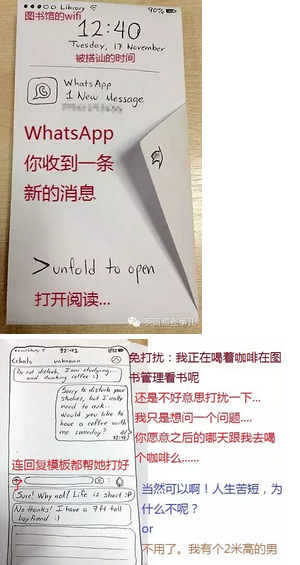 ●●●○○ Library 90%
图书馆的wifi
12:40
Tuesday, 17 November
被搭讪的时间
WhatsApp
1 New Message
WhatsApp
你收到一条
新的消息
>unfold to open
打开阅读...
英国那些事儿
12:41
Chats unknown
Do not disturb, I am studying...
and drinking coffee :)
Sorry to disturb your
studies, but I really
need to ask...
would you like to
have a coffee with
me someday?
12:39
免打扰：我正在喝着咖啡在图
书管理看书呢
还是不好意思打扰一下...
我只是想问一个问题....
你愿意之后的哪天跟我去喝
个咖么......
连回复模板都帮她打好
Sure! Why not? Life is short :P
No thanks! I have a 7ft tall
boyfriend :)
当然可以啊！人生苦短，为
什么不呢？
or
不用了。我有个2米高的男